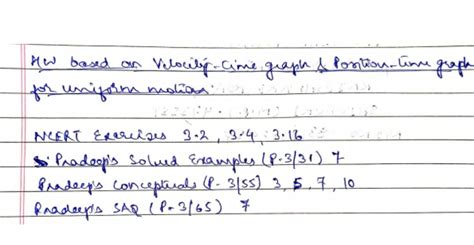 HW based on Velocity-time graph & Position-time graph
for uniform motion:
NCERT Exercises 3.2, 3.4, 3.16
Pradeep's Solved Examples (P-3/31) 7
Pradeep's Conceptuals (P-3/55) 3, 5, 7, 10
Pradeep's SAQ (P-3/65) 7